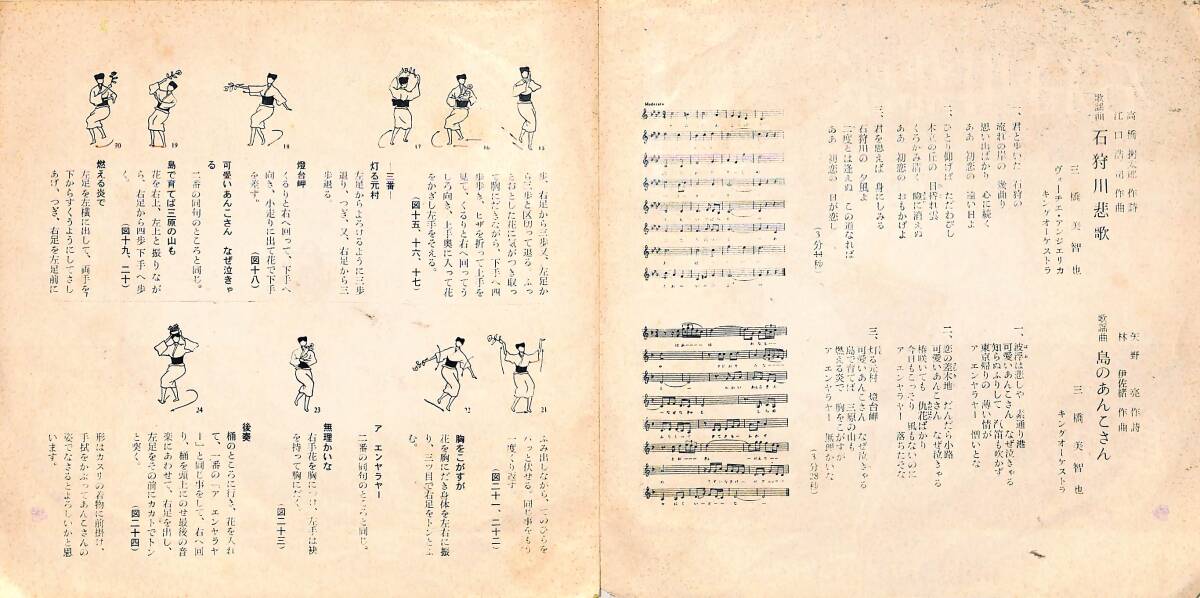 歌謡曲 石狩川悲歌
三橋美智也
ヴォーチェ・アンジェリカ
キングオーケストラ
一、君と歩いた 石狩の
流れの岸の 幾曲り
思い出ばかり 心に続く
ああ 初恋の 遠い日よ
二、ひとり仰げば ただわびし
木立の丘の 日昏れ雲
くろかみ清く 瞳に消えぬ
ああ 初恋の おもかげよ
三、君を思えば 身にしみる
石狩川の 夕風よ
二度とは逢えぬ この道なれば
ああ 初恋の 日が恋し
Moderato
矢野 亮 作詩
林 伊佐緒 作曲
歌謡曲 島のあんこさん
三橋美智也
キングオーケストラ
一、波浮は悲しや 素通り港
可愛いあんこさん なぜ泣きゃる
知らぬふりして 汽笛も吹かず
東京帰りの 薄い情が
ア エンヤラヤー 憎いとな
二、恋の差木地 だんだら小路
可愛いあんこさん なぜ泣きゃる
椿咲いても 仇花ばかり
今日もこっそり 風もないのに
ア エンヤラヤー 落ちたそな
三、灯る元村 燈台岬
可愛いあんこさん なぜ泣きゃる
島で育てば 三原の山も
燃える炎で 胸をこがすが
ア エンヤラヤー 無理かいな
(3分28秒)
歩、右足から三歩又、左足か
ら三歩と区切って退る ふっ
とおとした花に気がつき取っ
て胸にだきながら、下手へ四
歩歩き、ヒザを折って上手を
見て、くるりと右へ回ってう
しろ向き、上手奥に入って花
をかざし左手をそえる。
(図十五、十六、十七)
―三番―
灯る元村
左足からよろけるように三歩
退り、つぎ、又、右足から三
歩退る。
燈台岬
くるりと右へ回って、下手へ
向き、小走りに出て花で下手
を差す。
(図十八)
可愛いあんこさん なぜ泣きゃ
る
二番の同句のところと同じ。
島で育てば三原の山も
花を右上、左上と振りなが
ら、右足から四歩下手へ歩
く。
(図十九、二十)
燃える炎で
左足を左横に出して、両手を
下からすくうようにしてさし
あげ、つぎ、右足を左足前に
15
16
17
18
19
20
ふみ出しながら、てのひらを
ハっと伏せる。同じ事をもう
一度くり返す
(図二十一、二十二)
胸をこがすが
花を胸にだき身体を左右に振
り、三ツ目で右足をトンとふ
む。
ア エンヤラヤー
二番の同句のところと同じ。
無理かいな
右手花を胸につけ、左手は袂
を持って胸にだく。
(図二十三)
後奏
桶のところに行き、花を入れ
て、一番の「ア エンヤラヤ
ー」と同じ事をして、右へ回
り、桶を頭上にのせ最後の音
楽にあわせて、右足を出し、
左足をその前にカカトでトン
と突く。
(図二十四)
形はカスリの着物に前掛け、
手拭をかぶってあんこさんの
姿でなさるとよろしいかと思
います。
21
22
23
24